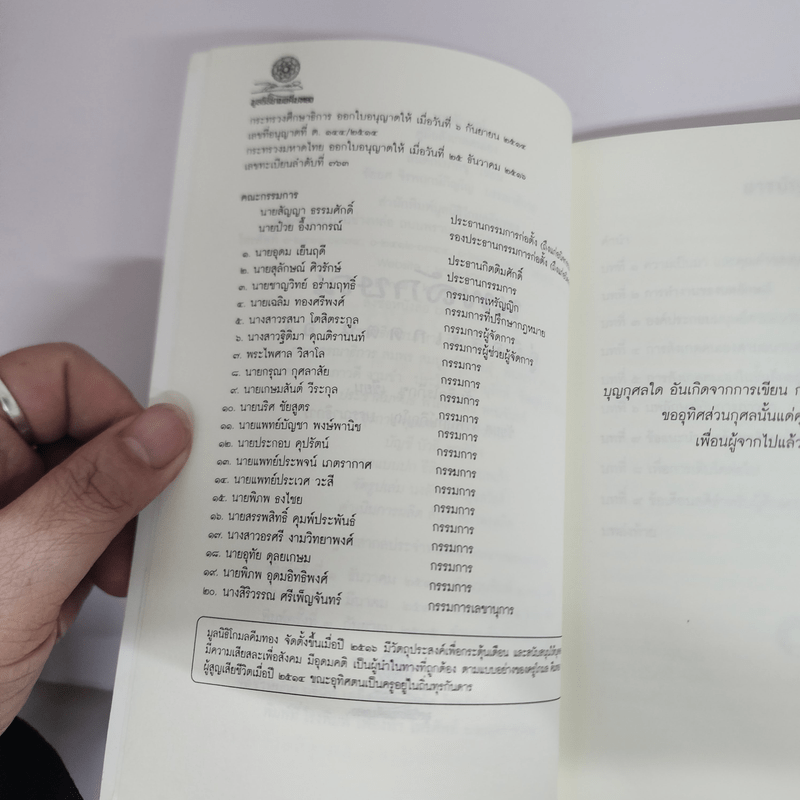 มูลนิธิโกมลคีมทอง
กระทรวงศึกษาธิการ ออกใบอนุญาตให้ เมื่อวันที่ ๖ กันยายน ๒๕๑๔
เลขที่อนุญาตที่ ต. ๑๔๔/๒๕๑๔
กระทรวงมหาดไทย ออกใบอนุญาตให้ เมื่อวันที่ ๒๕ ธันวาคม ๒๕๑๖
เลขทะเบียนลำดับที่ ๗๖๓
คณะกรรมการ
นายสัญญา ธรรมศักดิ์ ประธานกรรมการก่อตั้ง
นายป๋วย อึ๊งภากรณ์ รองประธานกรรมการก่อตั้ง
๑. นายอุดม เย็นฤดี ประธานกิตติมศักดิ์
๒. นายสุลักษณ์ ศิวรักษ์ ประธานกรรมการ
๓. นายชาญวิทย์ อร่ามฤทธิ์ กรรมการเหรัญญิก
๔. นายเฉลิม ทองศรีพงศ์ กรรมการที่ปรึกษากฎหมาย
๕. นางสาวรสนา โตสิตระกูล กรรมการผู้จัดการ
๖. นางสาวฐิติมา คุณติรานนท์ กรรมการผู้ช่วยผู้จัดการ
๗. พระไพศาล วิสาโล กรรมการ
๘. นายกรุณา กุศลาสัย กรรมการ
๙. นายเกษมสันต์ วีระกุล กรรมการ
๑๐. นายนริศ ชัยสูตร กรรมการ
๑๑. นายแพทย์บัญชา พงษ์พานิช กรรมการ
๑๒. นายประกอบ คุปรัตน์ กรรมการ
๑๓. นายแพทย์ประพจน์ เภตรากาศ กรรมการ
๑๔. นายแพทย์ประเวศ วะสี กรรมการ
๑๕. นายพิภพ ธงไชย กรรมการ
๑๖. นายสรรพสิทธิ์ คุมพ์ประพันธ์ กรรมการ
๑๗. นางสาวอรศรี งามวิทยาพงศ์ กรรมการ
๑๘. นายอุทัย ดุลยเกษม กรรมการ
๑๙. นายพิภพ อุดมอิทธิพงศ์ กรรมการ
๒๐. นางสิริวรรณ ศรีเพ็ญจันทร์ กรรมการเลขานุการ
มูลนิธิโกมลคีมทอง จัดตั้งขึ้นเมื่อปี ๒๕๑๖ มีวัตถุประสงค์เพื่อกระตุ้นเตือน และสนับสนุนให้
มีความเสียสละเพื่อสังคม มีอุดมคติ เป็นผู้นำในทางที่ถูกต้อง ตามแบบอย่างของครูโกมล
ผู้สูญเสียชีวิตเมื่อปี ๒๕๑๔ ขณะอุทิศตนเป็นครูอยู่ในถิ่นทุรกันดาร
บุญกุศลใด อันเกิดจากการเขียน
ขออุทิศส่วนกุศลนั้นแด่
เพื่อนผู้จากไปแล้ว